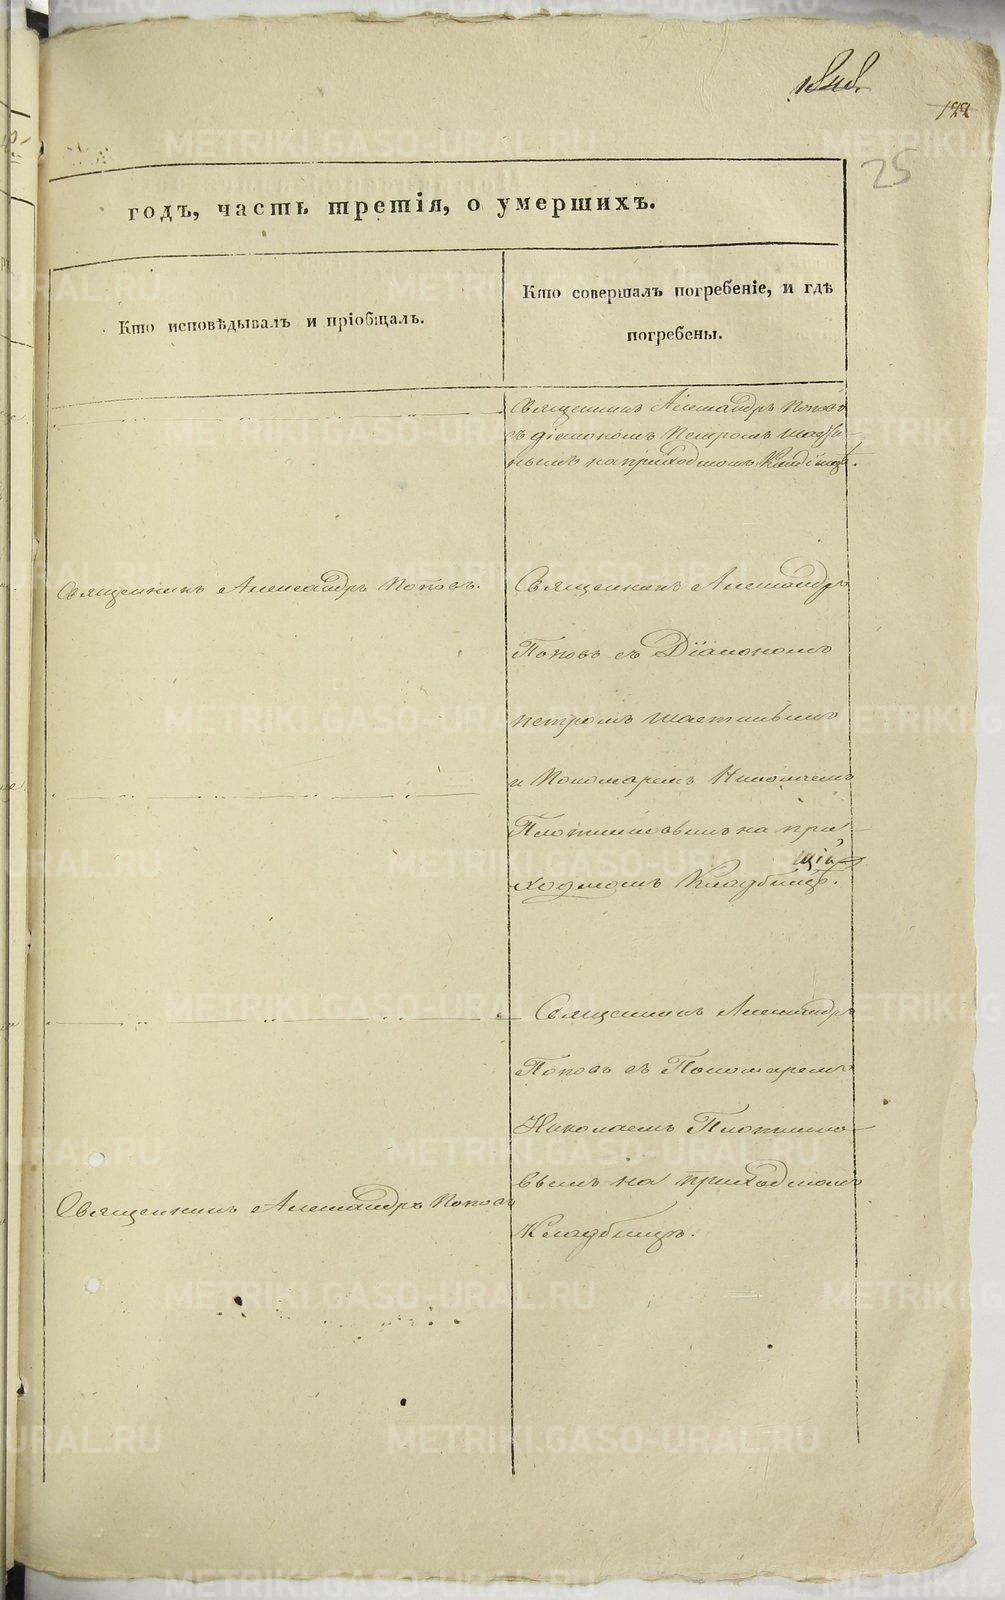 122
25
годъ, часть третія, о умершихъ.
Кто исповѣдывалъ и пріобщалъ.
Кто совершалъ погребеніе, и гдѣ
погребены.
Священникъ Александръ Поповъ
съ діакономъ Петромъ
на приходскомъ Кладбищѣ.
Священникъ Александръ Поповъ.
Священникъ Александръ
Поповъ съ Діакономъ
петромъ
и Пономаремъ Николаемъ
Плотниковымъ на при-
ходскомъ Кладбищѣ.
Священникъ Александръ
Поповъ съ Пономаремъ
Николаемъ Плотнико-
вымъ на приходскомъ
Священникъ Александръ Поповъ
Кладбищѣ.
METRIKI.GASO-URAL.RU